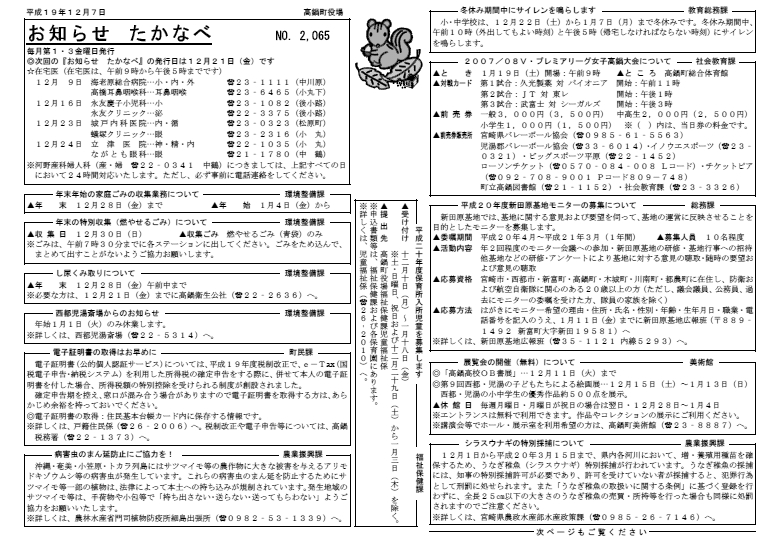 平成１９年１２月７日 高鍋町役場
お知らせ たかなべ NO. 2,065
毎月第１・３金曜日発行
◎次回の『お知らせ たかなべ』の発行日は１２月２１日（金）です
☆在宅医（在宅医は、午前９時から午後５時までです）
１２月 ９日 海老原総合病院…小・内・外 ☎２３－１１１１（中川原）
高橋耳鼻咽喉科…耳鼻咽喉 ☎２３－６４６５（小丸下）
１２月１６日 永友慶子小児科…小 ☎２３－１０８２（後小路）
永友クリニック…泌 ☎２２－３３７５（後小路）
１２月２３日 城戸内科医院…内・循 ☎２３－０３２３（松原町）
蟻塚クリニック…眼 ☎２３－２３１６（小 丸）
１２月２４日 立津医院…神・精・内 ☎２２－１０３５（小 丸）
ながとも眼科…眼 ☎２１－１７８０（中 鶴）
※河野産科婦人科（産・婦 ☎２２－０３４１ 中鶴）につきましては、上記すべての日
において２４時間対応いたします。ただし、必ず事前に電話連絡をしてください。
年末年始の家庭ごみの収集業務について 環境整備課
▲年 末 １２月２８日（金）まで ▲年 始 １月４日（金）から
年末の特別収集（燃やせるごみ）について 環境整備課
▲収集日 １２月３０日（日） ▲収集ごみ 燃やせるごみ（青袋）のみ
※ごみは、午前７時３０分までに各ステーションに出してください。ごみをため込んで、
まとめて出すことがないようご協力お願いします。
し尿くみ取りについて 環境整備課
▲年 末 １２月２８日（金）午前中まで
※必要な方は、１２月２１日（金）までに高鍋衛生公社（☎２２－２６３６）へ。
西都児湯斎場からのお知らせ 環境整備課
年始１月１日（火）のみ休業します。
※詳しくは、西都児湯斎場（☎２２－５３１４）へ。
電子証明書の取得はお早めに 町民課
電子証明書（公的個人認証サービス）については、平成１９年度税制改正で、ｅ－Ｔａｘ（国
税電子申告・納税システム）を利用した所得税の確定申告をする際に、併せて本人の電子証
明書を付した場合、所得税額の特別控除を受けられる制度が創設されました。
確定申告期を控え、窓口が混み合う場合がありますので電子証明書を取得する方は、あら
かじめ余裕を持っておいでください。
◎電子証明書の取得：住民基本台帳カード内に保存する情報です。
※詳しくは、戸籍住民係（☎２６－２００６）へ。税制改正や電子申告等については、高鍋
税務署（☎２２－１３７３）へ。
病害虫のまん延防止にご協力を！ 農業振興課
沖縄・奄美・小笠原・トカラ列島にはサツマイモ等の農作物に大きな被害を与えるアリモ
ドキゾウムシ等の病害虫が発生しています。これらの病害虫のまん延を防止するためにサ
ツマイモ等一部の植物は、法律によって本土への持ち込みが規制されています。発生地域の
サツマイモ等は、手荷物や小包等で「持ち出さない・送らない・送ってもらわない」ようご
協力をお願いいたします。
※詳しくは、農林水産省門司植物防疫所細島出張所（☎０９８２－５３－１３３９）へ。
平成二十年度保育所入所児童を募集します 福祉保健課
▲受け付け 十二月十日（月）～一月十八日（金）
※土・日曜日、祝日および十二月二十九日（土）から一月三日（木）を除く。
▲提出先 高鍋町役場福祉保健課児童福祉係
※申込書類等は、福祉保健課および各保育園にあります。
※詳しくは、児童福祉係（☎２６－２０１０）へ。
冬休み期間中にサイレンを鳴らします 教育総務課
小・中学校は、１２月２２日（土）から１月７日（月）まで冬休みです。冬休み期間中、
午前１０時（外出してもよい時刻）と午後５時（帰宅しなければならない時刻）にサイレン
を鳴らします。
２００７／０８Ｖ・プレミアリーグ女子高鍋大会について 社会教育課
▲と き １月１９日（土）開場：午前９時 ▲ところ 高鍋町総合体育館
▲対戦カード 第１試合：久光製薬 対 パイオニア 開始：午前１１時
第２試合：ＪＴ 対 東レ 開始：午後１時
第３試合：武富士 対 シーガルズ 開始：午後３時
▲前売券 一般３，０００円（３，５００円） 中高生２，０００円（２，５００円）
小学生１，０００円（１，５００円） ※（ ）内は、当日券の料金です。
▲前売券販売所 宮崎県バレーボール協会（☎０９８５－６１－５５６３）
児湯郡バレーボール協会（☎３３－６０１４）・イノウエスポーツ（☎２３－
０３２１）・ビッグスポーツ平原（☎２２－１４５２）
ローソンチケット（☎０５７０－０８４－００８ Ｌコード）・チケットピア
（☎０９２－７０８－９００１ Ｐコード８０９－７４８）
町立高鍋図書館（☎２１－１１５２）・社会教育課（☎２３－３３２６）
平成２０年度新田原基地モニターの募集について 総務課
新田原基地では、基地に関する意見および要望を伺って、基地の運営に反映させることを
目的としたモニターを募集します。
▲委嘱期間 平成２０年４月～平成２１年３月（１年間） ▲募集人員 １０名程度
▲活動内容 年２回程度のモニター会議への参加・新田原基地の研修・基地行事への招待
他基地などの研修・アンケートにより基地に対する意見の聴取・随時の要望お
よび意見の聴取
▲応募資格 宮崎市・西都市・新富町・高鍋町・木城町・川南町・都農町に在住し、防衛お
よび航空自衛隊に関心のある２０歳以上の方（ただし、議会議員、公務員、過
去にモニターの委嘱を受けた方、隊員の家族を除く）
▲応募方法 はがきにモニター希望の理由・住所・氏名・性別・年齢・生年月日・職業・電
話番号を記入のうえ、１月１１日（金）までに新田原基地広報班（〒８８９－
１４９２ 新富町大字新田１９５８１）へ
※詳しくは、新田原基地広報班（☎３５－１１２１ 内線５２９３）へ。
展覧会の開催（無料）について 美術館
◎「高鍋高校ＯＢ書展」…１２月１１日（火）まで
◎第９回西都・児湯の子どもたちによる絵画展…１２月１５日（土）～１月１３日（日）
西都・児湯の小中学生の優秀作品約５００点を展示。
▲休館日 毎週月曜・月曜日が祝日の場合は翌日・１２月２８日～１月４日
※エントランスは無料で利用できます。作品やコレクションの展示にご利用ください。
※講演会等でホール・展示室を利用希望の方は、高鍋町美術館（☎２３－８８８７）へ。
シラスウナギの特別採捕について 農業振興課
１２月１日から平成２０年３月１５日まで、県内各河川において、増・養殖用種苗を確
保するため、うなぎ稚魚（シラスウナギ）特別採捕が行われています。うなぎ稚魚の採捕
には、知事の特別採捕許可が必要であり、許可を受けていない者が採捕すると、犯罪行為
として刑罰に処せられます。また「うなぎ稚魚の取扱いに関する条例」に基づく登録を行
わずに、全長２５ｃｍ以下の大きさのうなぎ稚魚の売買・所持等を行った場合も同様に処罰
されますのでご注意ください。
※詳しくは、宮崎県農政水産部水産政策課（☎０９８５－２６－７１４６）へ。
次ページもご覧ください